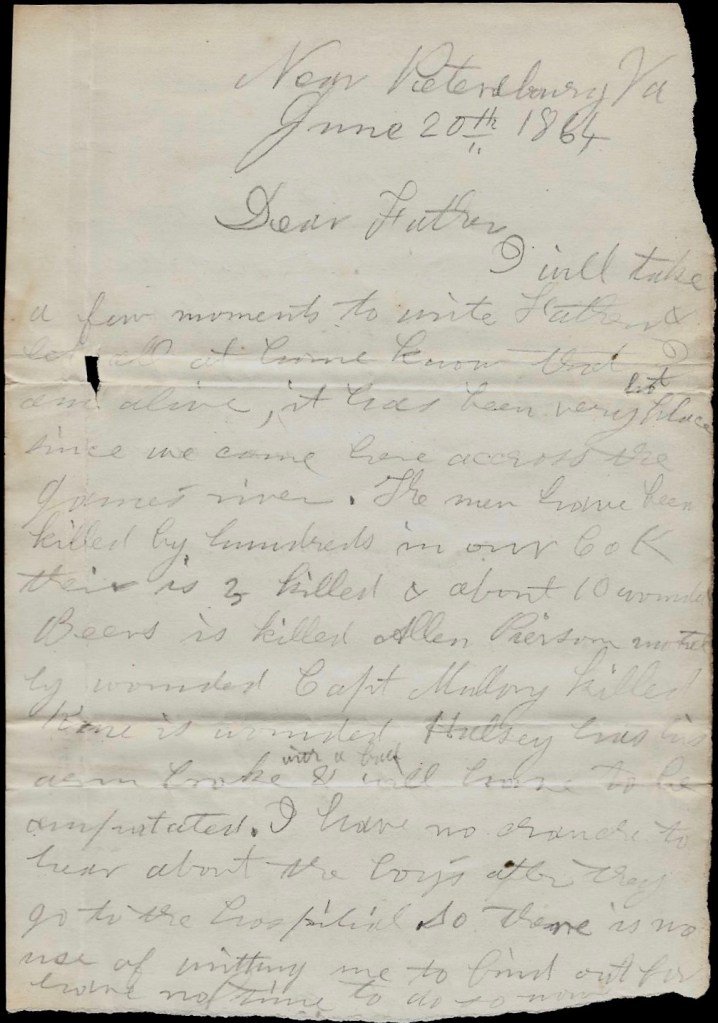 Near Petersburg Va
June 20th 1864
Dear Father
I will take
a few moments to write Father &
let all at home know that I
am alive, it has been very hot place
since we came here accross the
James river. The men have been
killed by hundreds in our Co K
their is 3 killed & about 10 wounded
Beers is killed Allen Pierson mortel
ly wounded Capt Mallory killed
Kane is wounded Hulsey has his
arm broke with a ball & will have to be
amputated. I have no chance to
hear about the boys after they
go to the hospitial so there is no
use of writting me to find out for
have no time to do so now